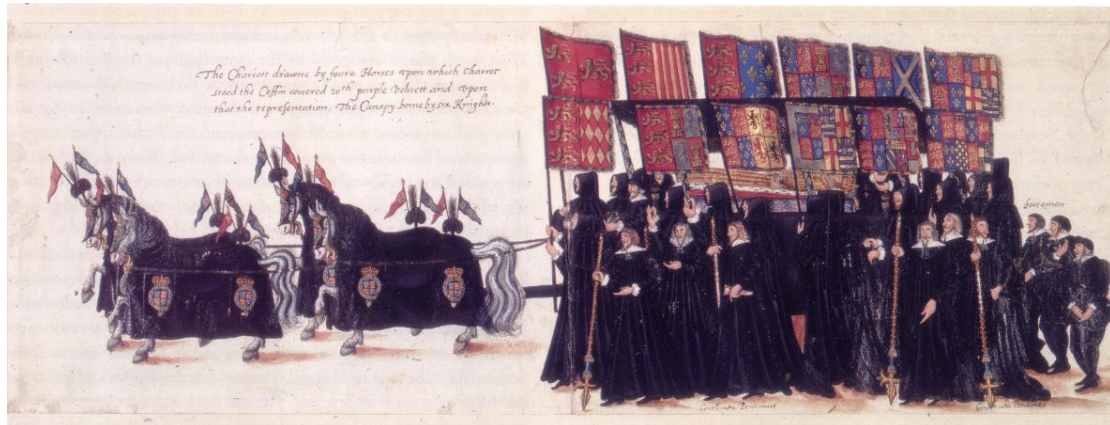 The Chariott drawne by foure Horses vpon which Charret
stood the Coffin couered wth purple Veluett and vpon
that the representation, The Canapy borne by six Knights.
footemen
Gentlemen Pentioners
Gentlemen Pentioners